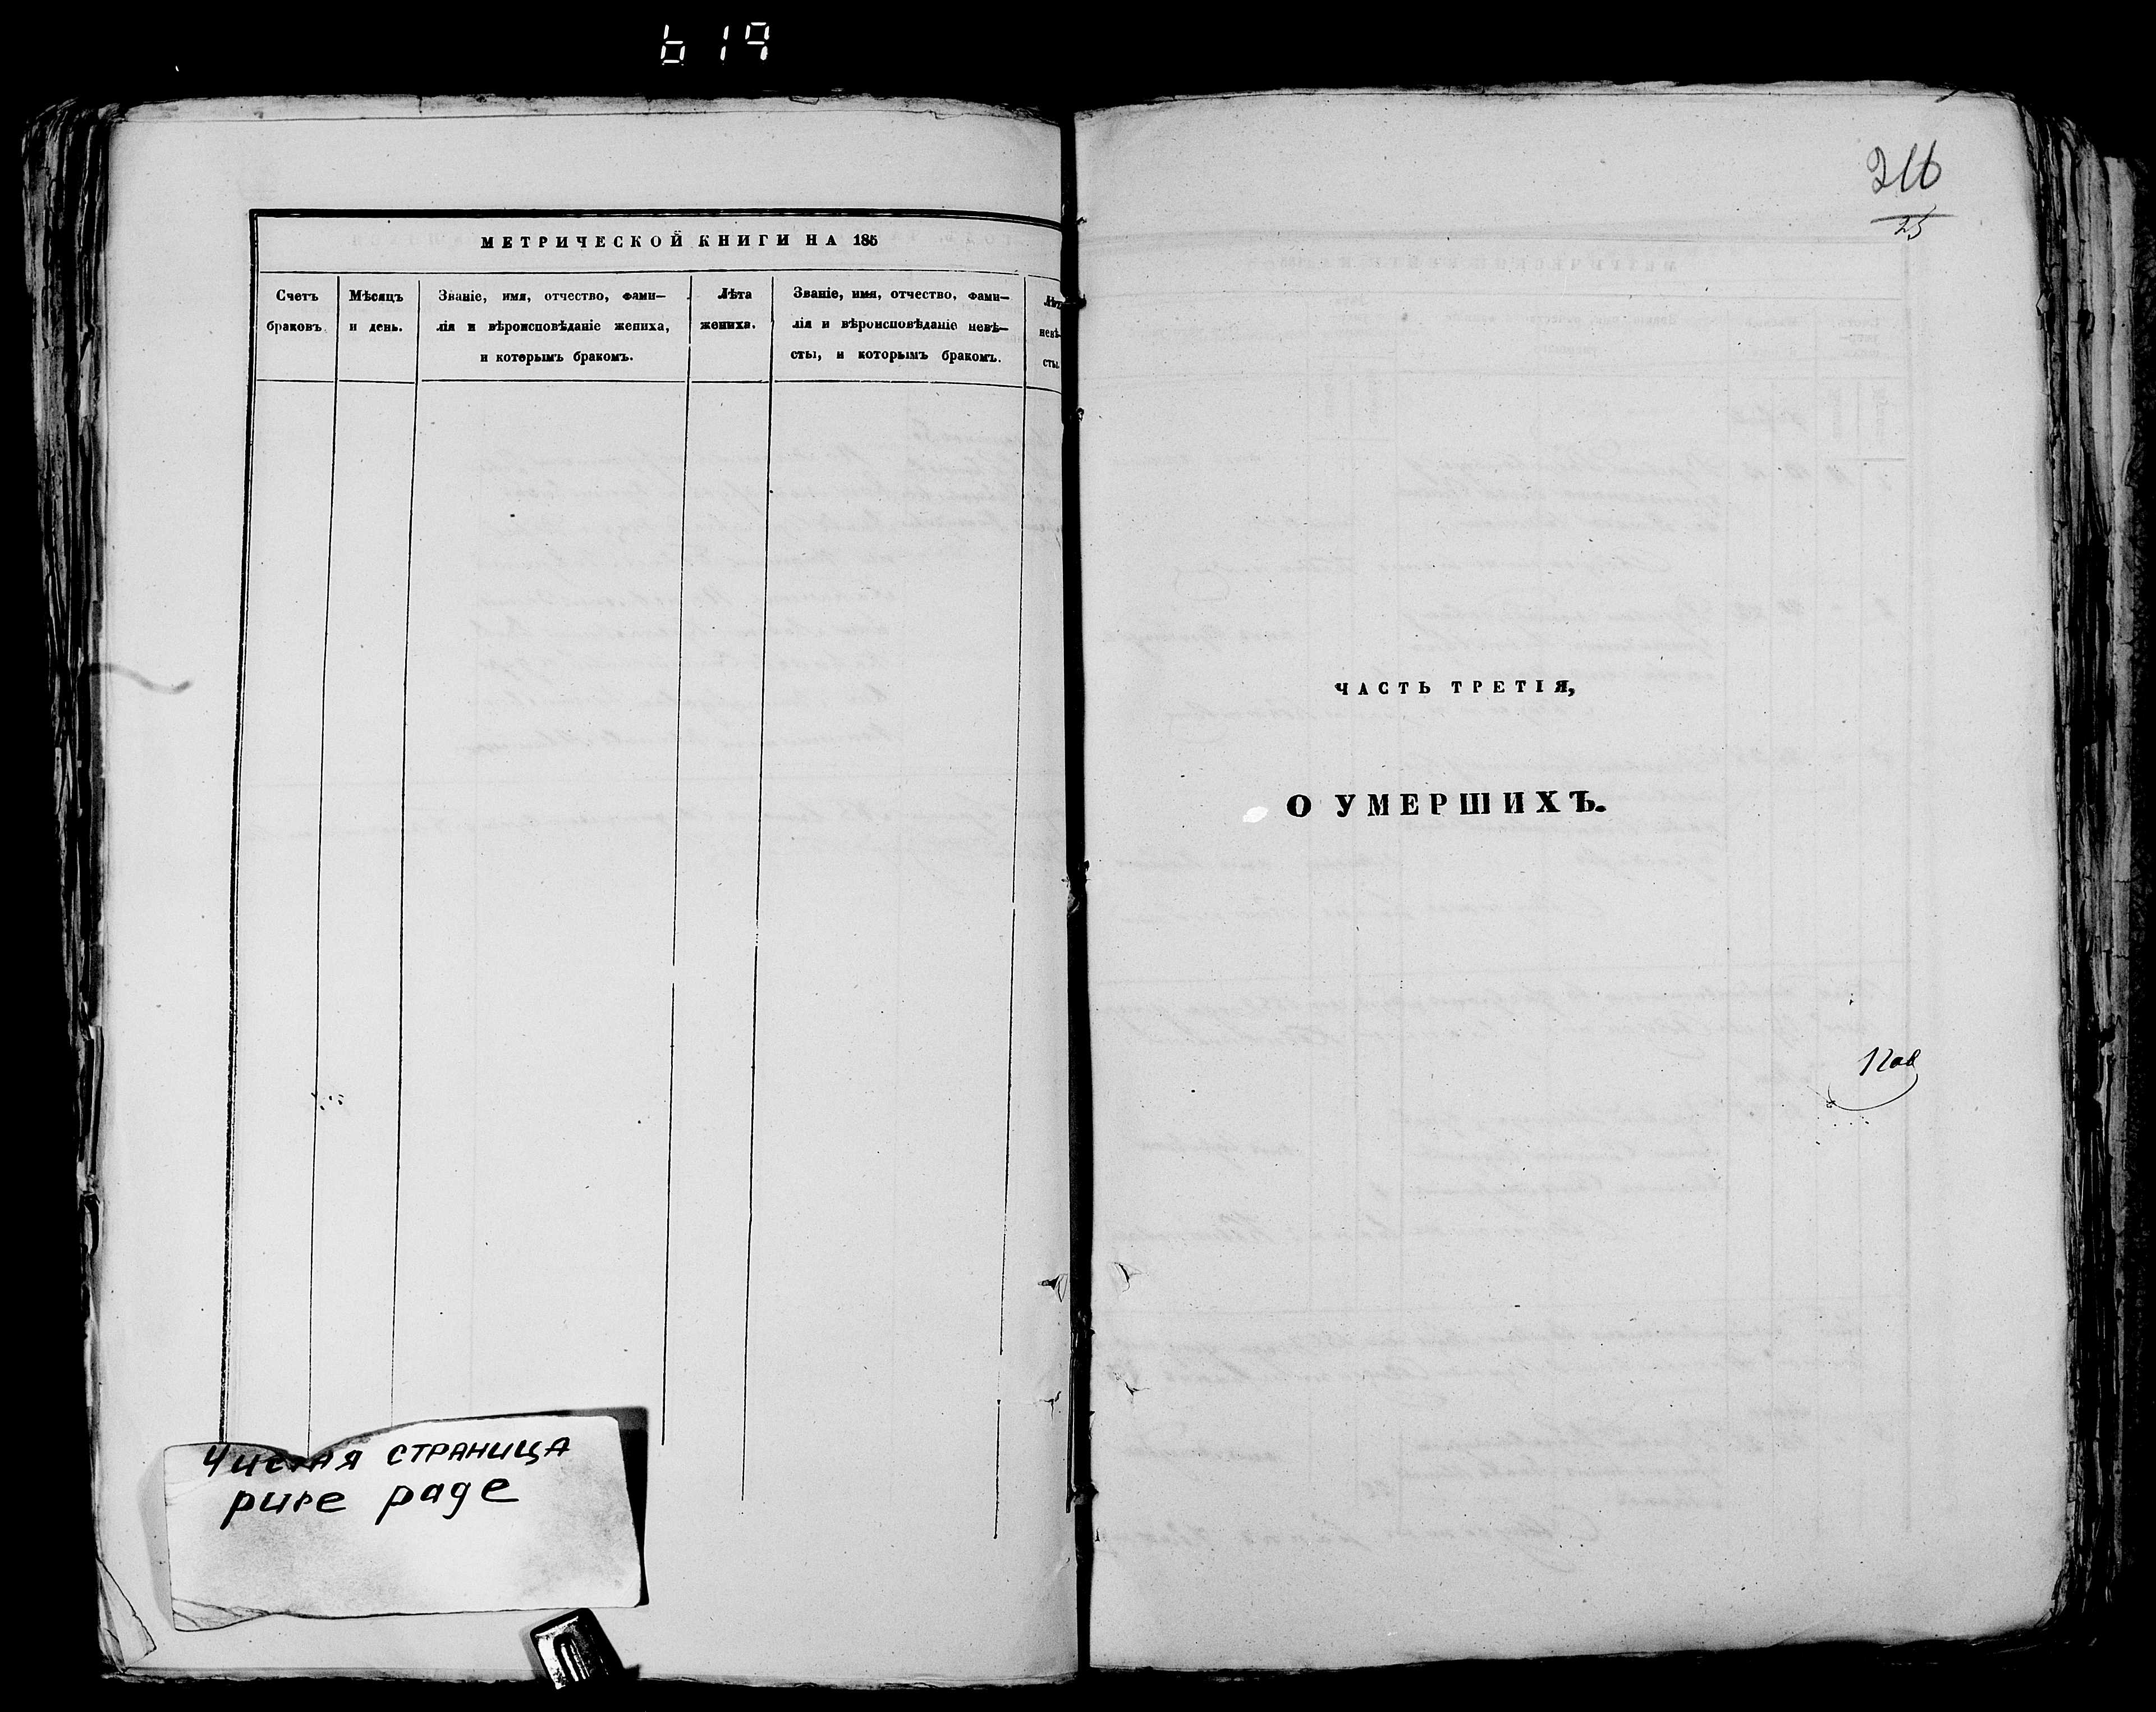 619
МЕТРИЧЕСКОЙ КНИГИ НА 185
Счетъ
браковъ.
Мѣсяцъ
и день.
Званіе, имя, отчество, фами—
лія и вѣроисповѣданіе жениха,
и которымъ бракомъ.
Лѣта
жениха.
Званіе, имя, отчество, фами—
лія и вѣроисповѣданіе невѣ—
сты, и которымъ бракомъ.
Лѣт
невѣ-
сты.
Чистая страница
pure page
216
25
ЧАСТЬ ТРЕТІЯ,
О УМЕРШИХЪ.